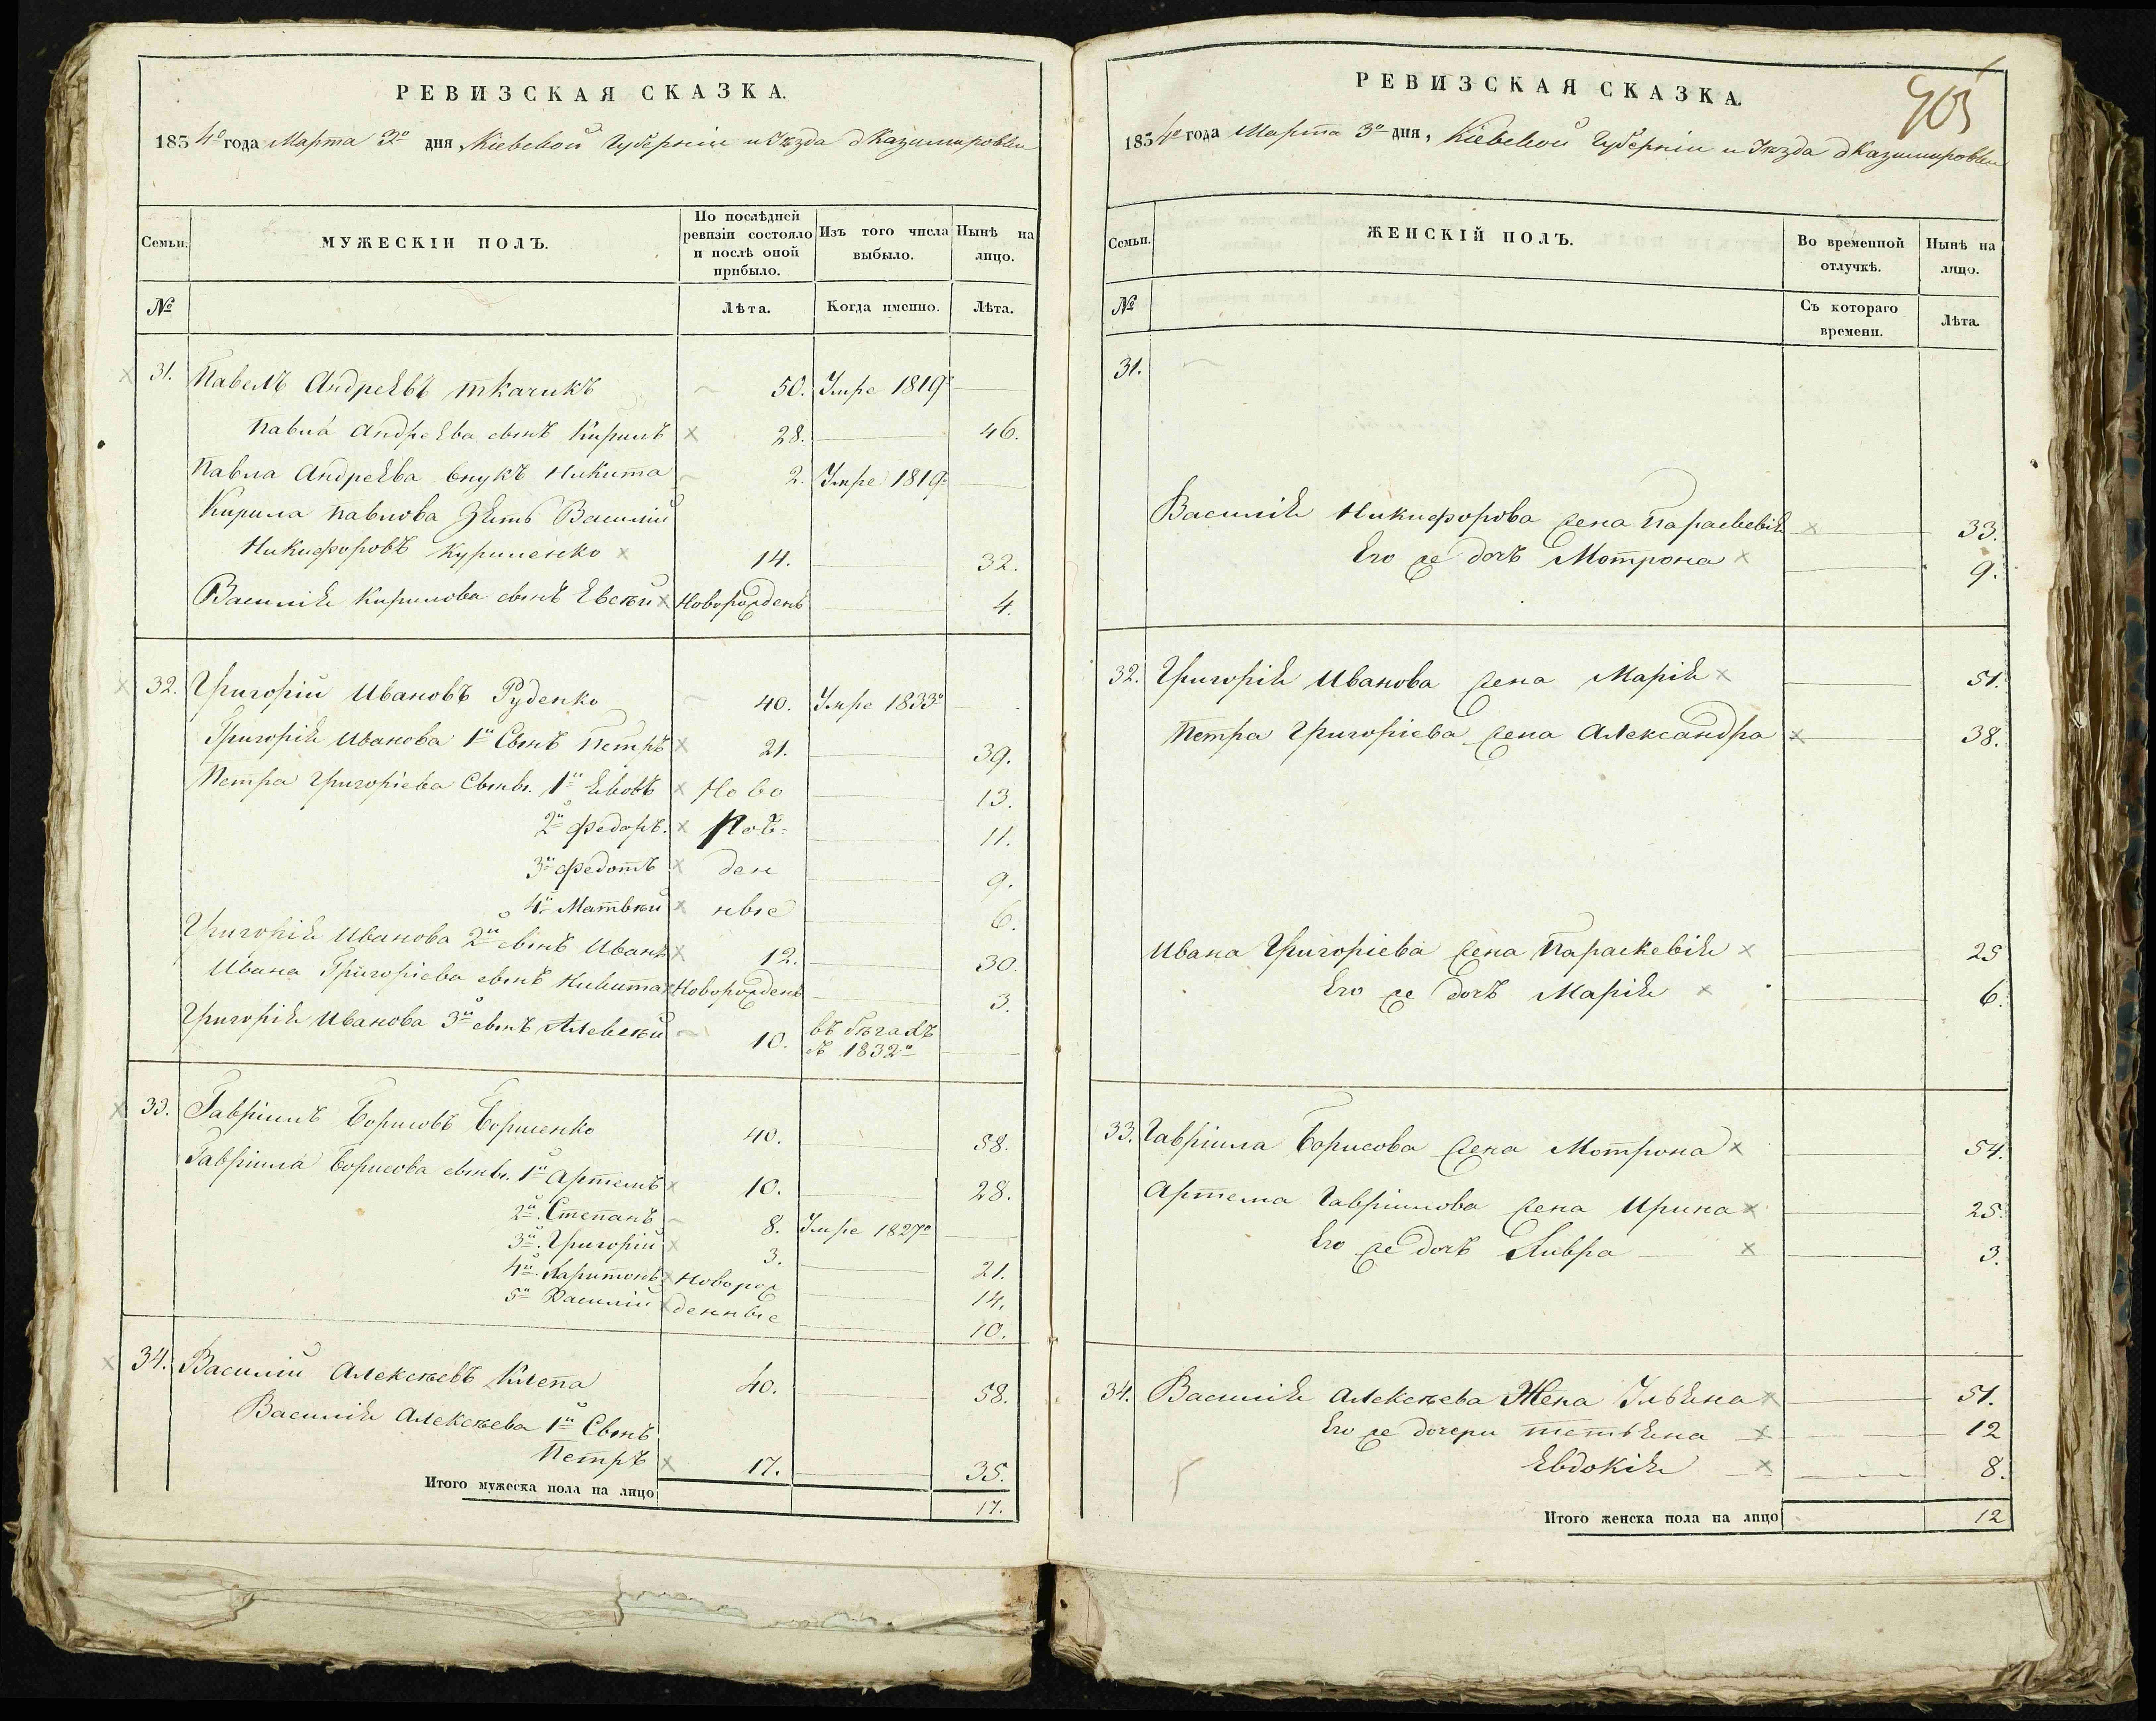 РЕВИЗСКАЯ СКАЗКА.
1834го года Марта 3го дня, Кіевской Губерніи и Уѣзда д Казимировки
Семьи. МУЖЕСКІИ ПОЛЪ. По послѣдней ревизіи состояло и послѣ оной прибыло. Изъ того числа выбыло. Нынѣ на лицо.
№ Лѣта. Когда именно. Лѣта.
31. Павелъ Андреевъ Ткачикъ 50. Умре 1819го
Павла Андреева сынъ Кирилъ × 28. 46.
Павла Андреева внукъ Никита 2. Умре 1819го
Кирила Павлова Зять Василій
Никифоровъ Куриленко × 14. 32.
Василія Кирилова сынъ Евсѣй × Новорожденъ 4.
32. Григорій Ивановъ Руденко 40. Умре 1833го
Григорія Иванова 1й Сынъ Петръ × 21. 39.
Петра Григоріева Сынъ. 1й Яковъ × Ново 13.
2й Федоръ. × 11.
3й Федотъ × ден 9.
4й Матвѣй × ные 6.
Григорія Иванова 2й сынъ Иванъ × 12. 30.
Ивана Григоріева сынъ Никита × Новорожденъ 3.
Григорія Иванова 3й сынъ Алексѣй 10. въ бѣгахъ
съ 1832го
33. Гавріилъ Борисовъ Борисенко 40. 58.
Гавріила Борисова сынъ. 1й Артемъ × 10. 28.
2й. Степанъ 8. Умре 1827го
3й. Григорій × 3. 21.
4й. Харитонъ × Новорож 14.
5й Василій × денные 10.
34. Василій Алексѣевъ Клепа 40. 58.
Василія Алексѣева 1й Сынъ
Петръ × 17. 35.
Итого мужеска пола на лицо 17.
903
РЕВИЗСКАЯ СКАЗКА.
1834го года Марта 3го дня, Кіевской Губерніи и Уѣзда д Казимировки
Семьи. ЖЕНСКІЙ ПОЛЪ. Во временной отлучкѣ. Нынѣ на лицо.
№ Съ котораго времени. Лѣта.
31.
Василія Никифорова жена Параскевія × 33.
Его же дочь Мотрона × 9.
32. Григорія Иванова жена Марія × 51.
Петра Григоріева жена Александра × 38.
Ивана Григоріева жена Параскевія × 25
Его же дочь Марія × 6.
33. Гавріила Борисова жена Мотрона × 54.
Артема Гавріилова жена Ирина × 25.
Его же дочь × 3.
34. Василія Алексѣева Жена Ульяна × 51.
Его же дочери Тетьяна × 12
Евдокія × 8.
Итого женска пола на лицо 12